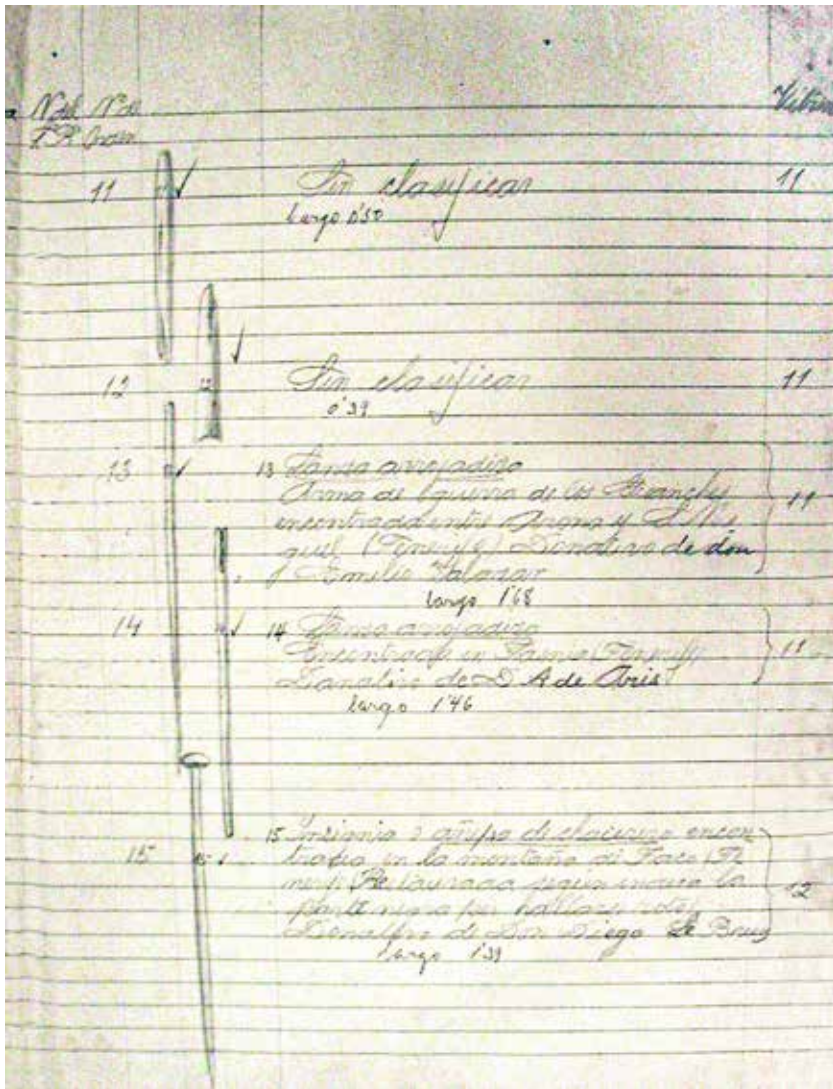 Nº del Nº de Vitrina
11 Sin clasificar 11
largo 0'50
12 12 Sin clasificar 11
0'39
13 13 Lanza arrojadiza
Arma de guerra de los Guanches
encontrada entre Arona y S. Mi
guel (Tenerife) Donativo de don
Emilio Salazar 11
largo 1'68
14 14 Lanza arrojadiza
Encontrada en (Tenerife)
Donativo de D A de Aris 11
largo 1'46
15 15 15 Insignia o de encon
trada en la montaña de Taco (Te
nerife) Restaurada según indica la
parte negra por hallarse rota
Donativo de Don Diego Le Brun 12
largo 1'39